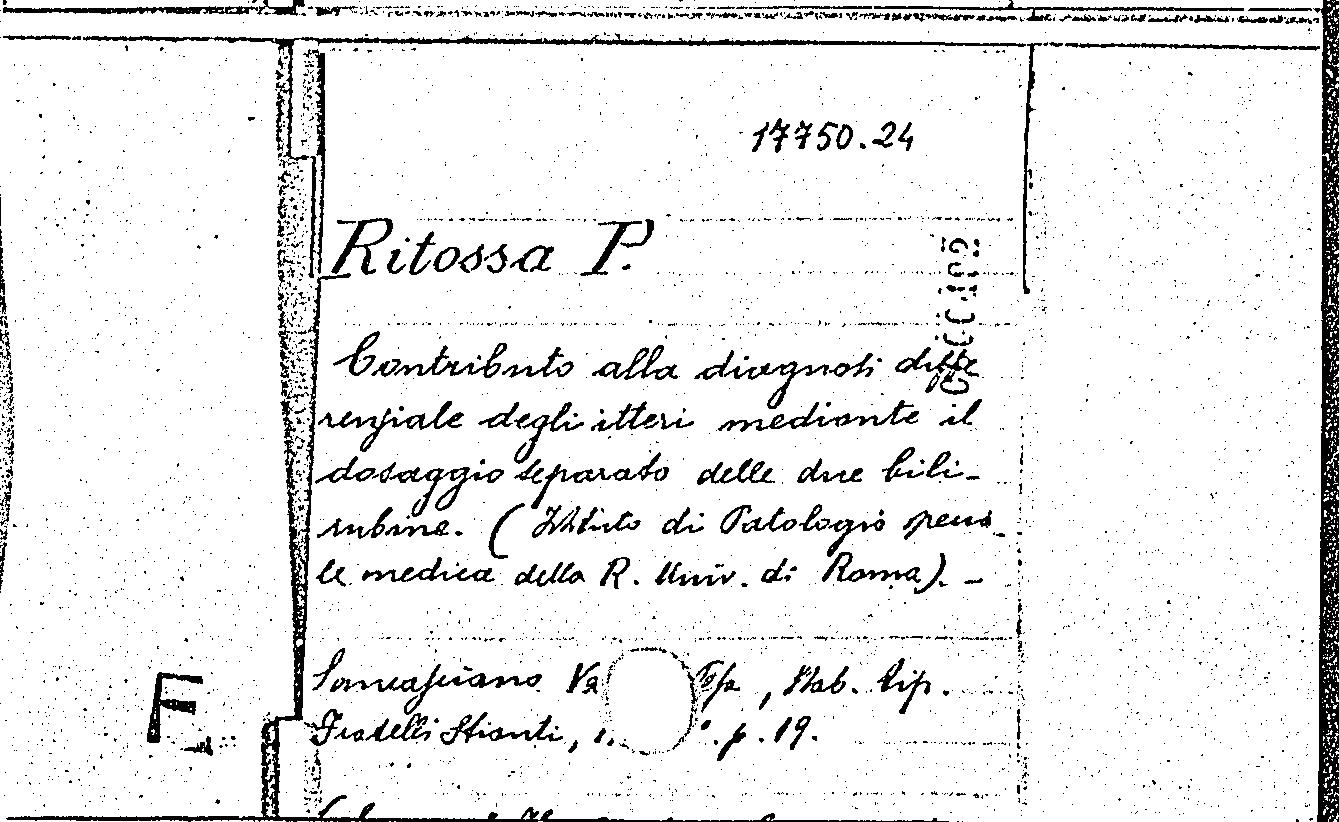 17750.24
Ritossa P.
Contributo alla diagnosi diffe
renziale degli itteri mediante il
dosaggio separato delle due bili-
rubine. ( Istituto di Patologia spec.
le medica della R. Univ. di Roma). -
Sancasciano Va Pesa, Stab. tip.
Fratelli Stianti, p. 19.
E